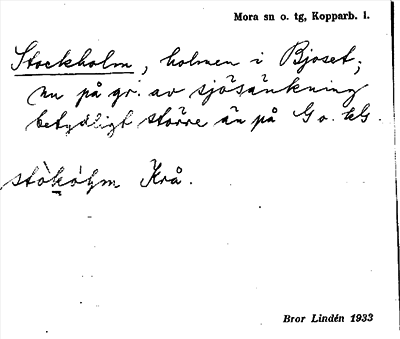 Mora sn o. tg, Kopparb. l.
Stockholm, holmen i Bjoset;
nu på gr. av sjösänkning
betydligt större än på G o. LG.
stòkó̀łm Krå.
Bror Lindén 1933